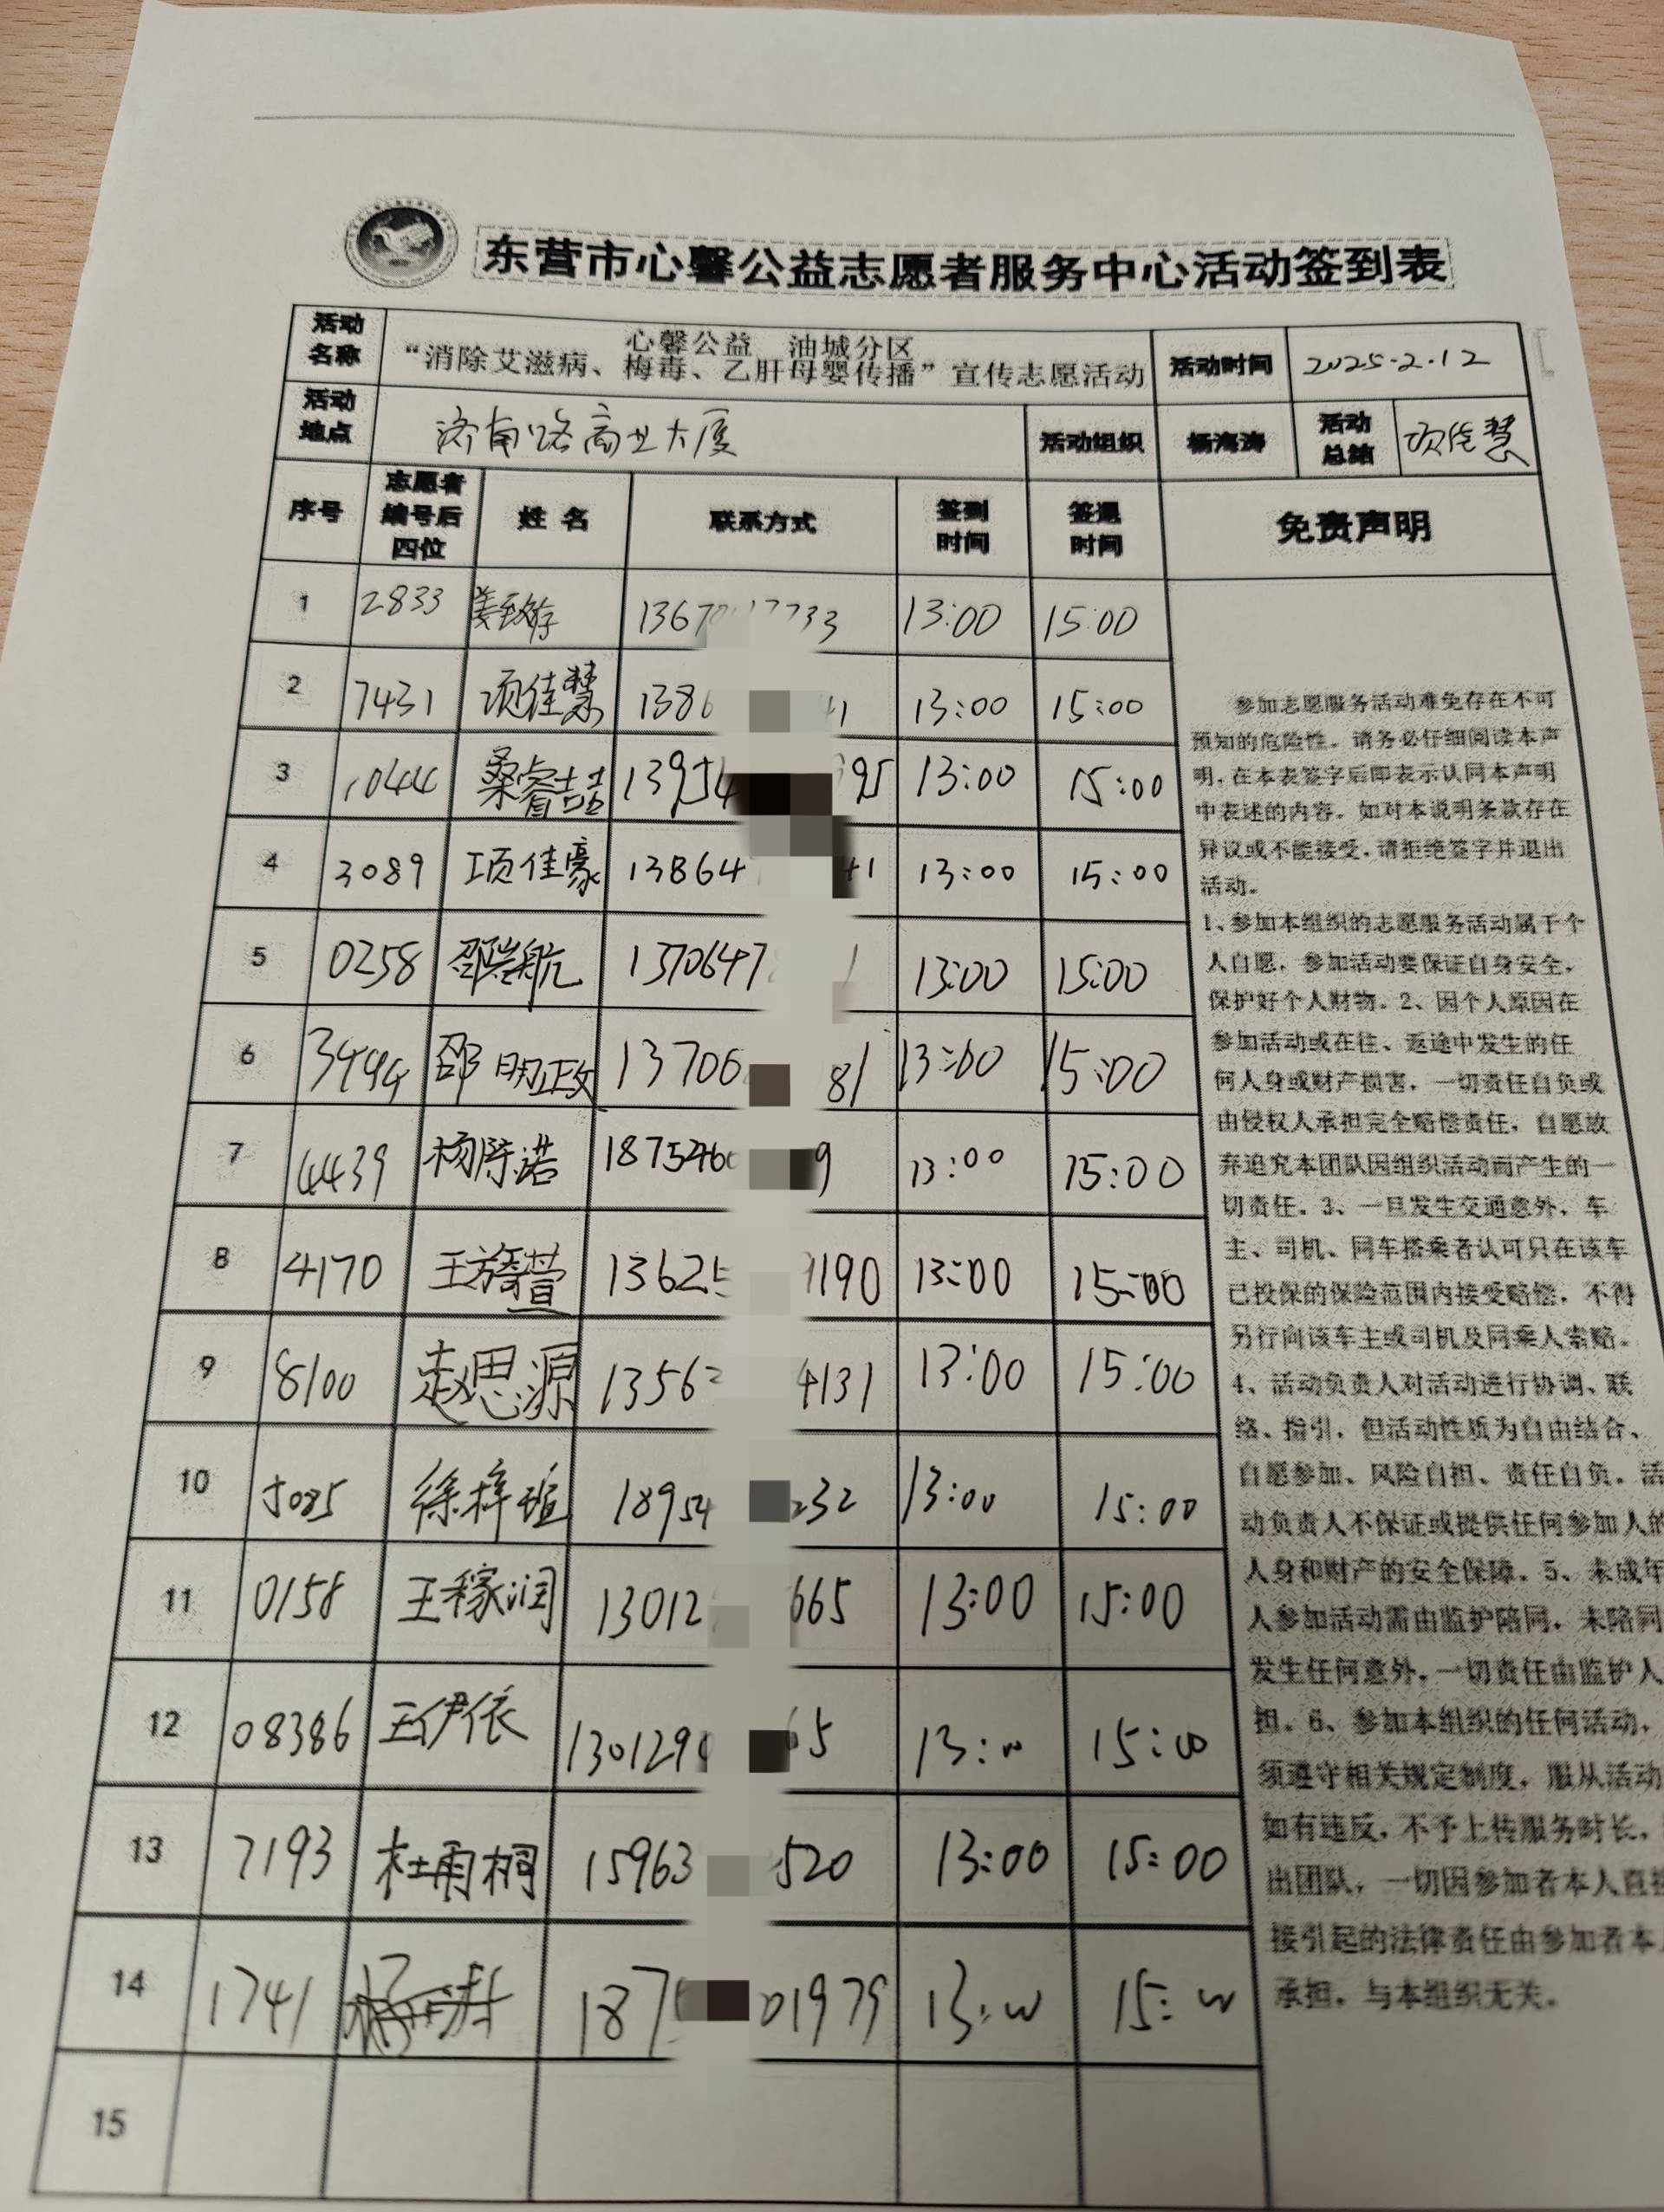 东营市心馨公益志愿者服务中心活动签到表
活动名称 心馨公益 油城分区
“消除艾滋病、梅毒、乙肝母婴传播”宣传志愿活动 活动时间 2025.2.12
活动地点 济南路商业大厦 活动组织 杨海涛 活动总结 项佳慧
序号 志愿者编号后四位 姓名 联系方式 签到时间 签退时间 免责声明
1 2833 13:00 15:00
2 7431 项佳慧 1386 1 13:00 15:00
3 1044 桑睿喆 13954 95 13:00 15:00
4 3089 项佳豪 13864 41 13:00 15:00
5 0258 邵崇航 1370647 1 13:00 15:00
6 邵明政 13706 81 13:00 15:00
7 4439 杨陈诺 1875460 9 13:00 15:00
8 4170 13625 190 13:00 15:00
9 8100 赵思源 1356 4131 13:00 15:00
10 5085 徐梓瑄 18954 232 13:00 15:00
11 0158 王稼润 13012 665 13:00 15:00
12 08386 王伊依 130129 65 13:00 15:00
13 7193 杜雨桐 15963 520 13:00 15:00
14 1741 187 01979 13:00 15:00
15
参加志愿服务活动难免存在不可
预知的危险性。请务必仔细阅读本声
明,在本表签字后即表示认同本声明
中表述的内容。如对本说明条款存在
异议或不能接受,请拒绝签字并退出
活动。
1、参加本组织的志愿服务活动属于个
人自愿,参加活动要保证自身安全,
保护好个人财物。2、因个人原因在
参加活动或在往、返途中发生的任
何人身或财产损害,一切责任自负或
由侵权人承担完全赔偿责任,自愿放
弃追究本团队因组织活动而产生的一
切责任。3、一旦发生交通意外,车
主、司机、同车搭乘者认可只在该车
已投保的保险范围内接受赔偿,不得
另行向该车主或司机及同乘人索赔。
4、活动负责人对活动进行协调、联
络、指引,但活动性质为自由结合、
自愿参加、风险自担、责任自负。活
动负责人不保证或提供任何参加人的
人身和财产的安全保障。5、未成年
人参加活动需由监护陪同,未陪同
发生任何意外,一切责任由监护人
担。6、参加本组织的任何活动,
须遵守相关规定制度,服从活动
如有违反,不予上传服务时长,
出团队,一切因参加者本人直接
接引起的法律责任由参加者本人
承担,与本组织无关。